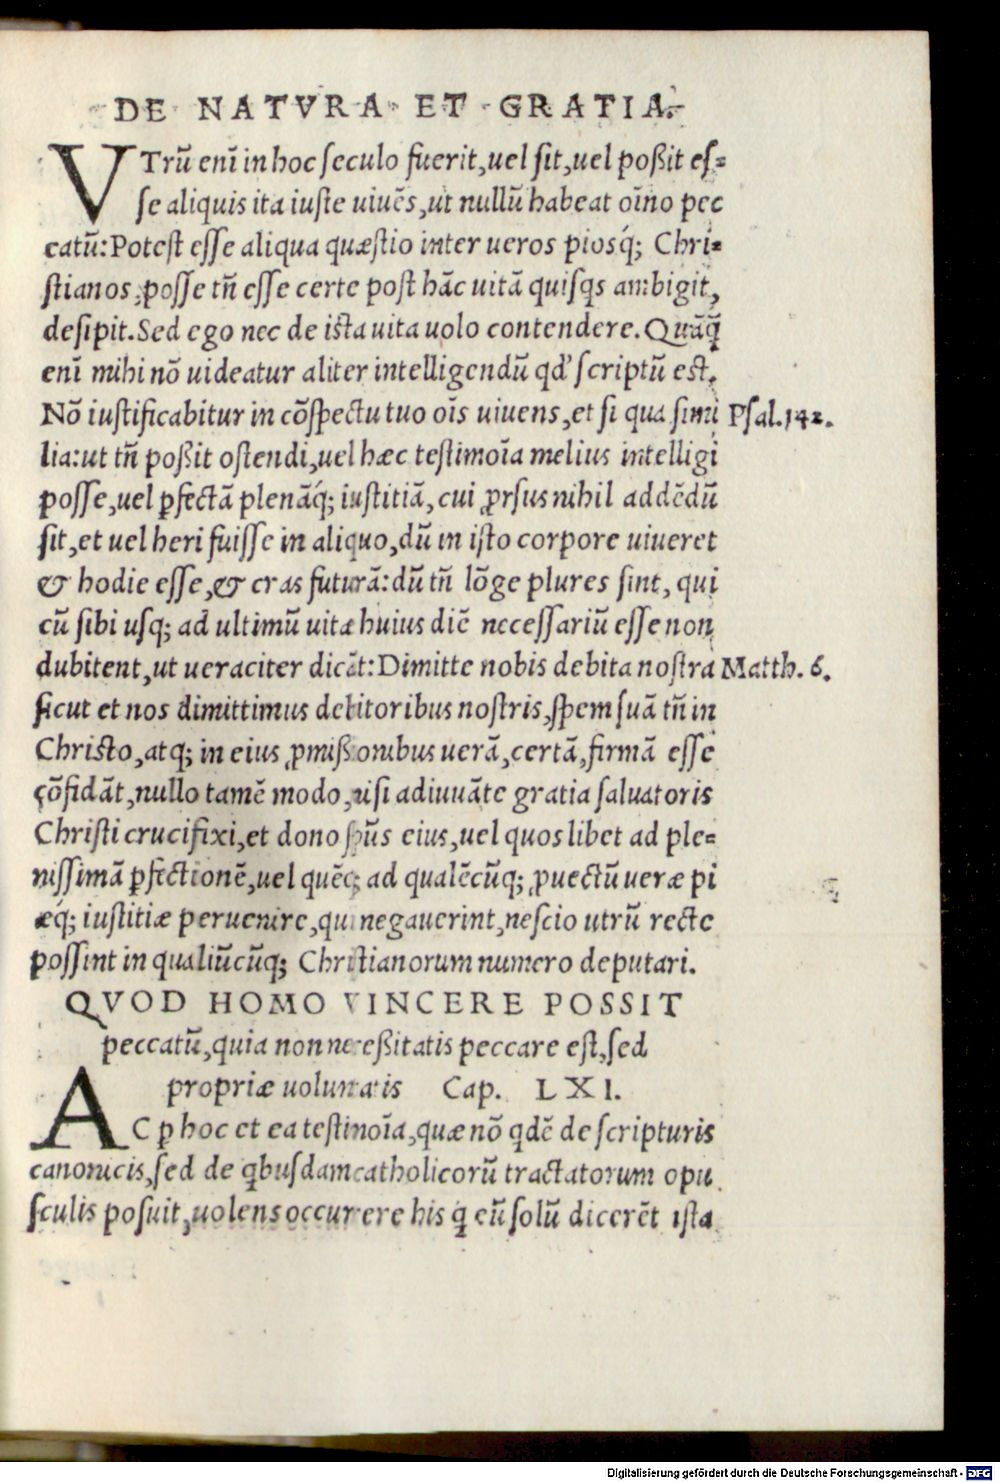 DE NATVRA ET GRATIA.
VTrũ enĩ in hoc ſeculo fuerit,uel ſit,uel poßit eſ-
ſe aliquis ita iuſte uiuẽs,ut nullũ habeat oĩno pec
catũ:Poteſt eſſe aliqua quæſtio inter ueros piosq́; Chri-
ſtianos,poſſe tñ eſſe certe poſt hãc uitã quiſqs ambigit,
deſipit.Sed ego nec de iſta uita uolo contendere.Quãq̃
enĩ mihi nõ uideatur aliter intelligendũ qď ſcriptũ eſt.
Nõ iuſtificabitur in cõſpectu tuo oĩs uiuens,et ſi qua ſimi Pſal.142.
lia:ut tñ poßit oſtendi,uel hæc teſtimoĩa melius intelligi
poſſe,uel ꝑfectã plenãq́; iuſtitiã,cui ꝓrſus nihil addẽdũ
ſit,et uel heri fuiſſe in aliquo,dũ in iſto corpore uiueret
& hodie eſſe,& cras futurã:dũ tñ lõge plures ſint, qui
cũ ſibi uſq; ad ultimũ uitæ huius diẽ neceſſariũ eſſe non
dubitent,ut ueraciter dicãt:Dimitte nobis debita noſtra Matth. 6.
ſicut et nos dimittimus debitoribus noſtris,ſpem ſuã tñ in
Chriſto,atq; in eius ꝓmißionibus uerã,certã,firmã eſſe
cõfidãt,nullo tamẽ modo,niſi adiuuãte gratia ſaluatoris
Chriſti crucifixi,et dono ſpũs eius,uel quoslibet ad ple-
niſſimã ꝑfectionẽ,uel quẽq; ad qualẽcũq; ꝓuectũ ueræ pi
æq́; iuſtitiæ peruenire,qui negauerint,neſcio utrũ recte
poſſint in qualiũcũq; Chriſtianorum numero deputari.
QVOD HOMO VINCERE POSSIT
peccatũ,quia non neceßitatis peccare eſt,ſed
propriæ uoluntatis Cap. LXI.
AC ꝑ hoc et ea teſtimoĩa,quæ nõ qdẽ de ſcripturis
canonicis,ſed de qbuſdam catholicorũ tractatorum opu
ſculis poſuit,uolens occurrere his q̃ eũ ſolũ dicerẽt iſta
Digitalisierung gefördert durch die Deutsche Forschungsgemeinschaft - DFG